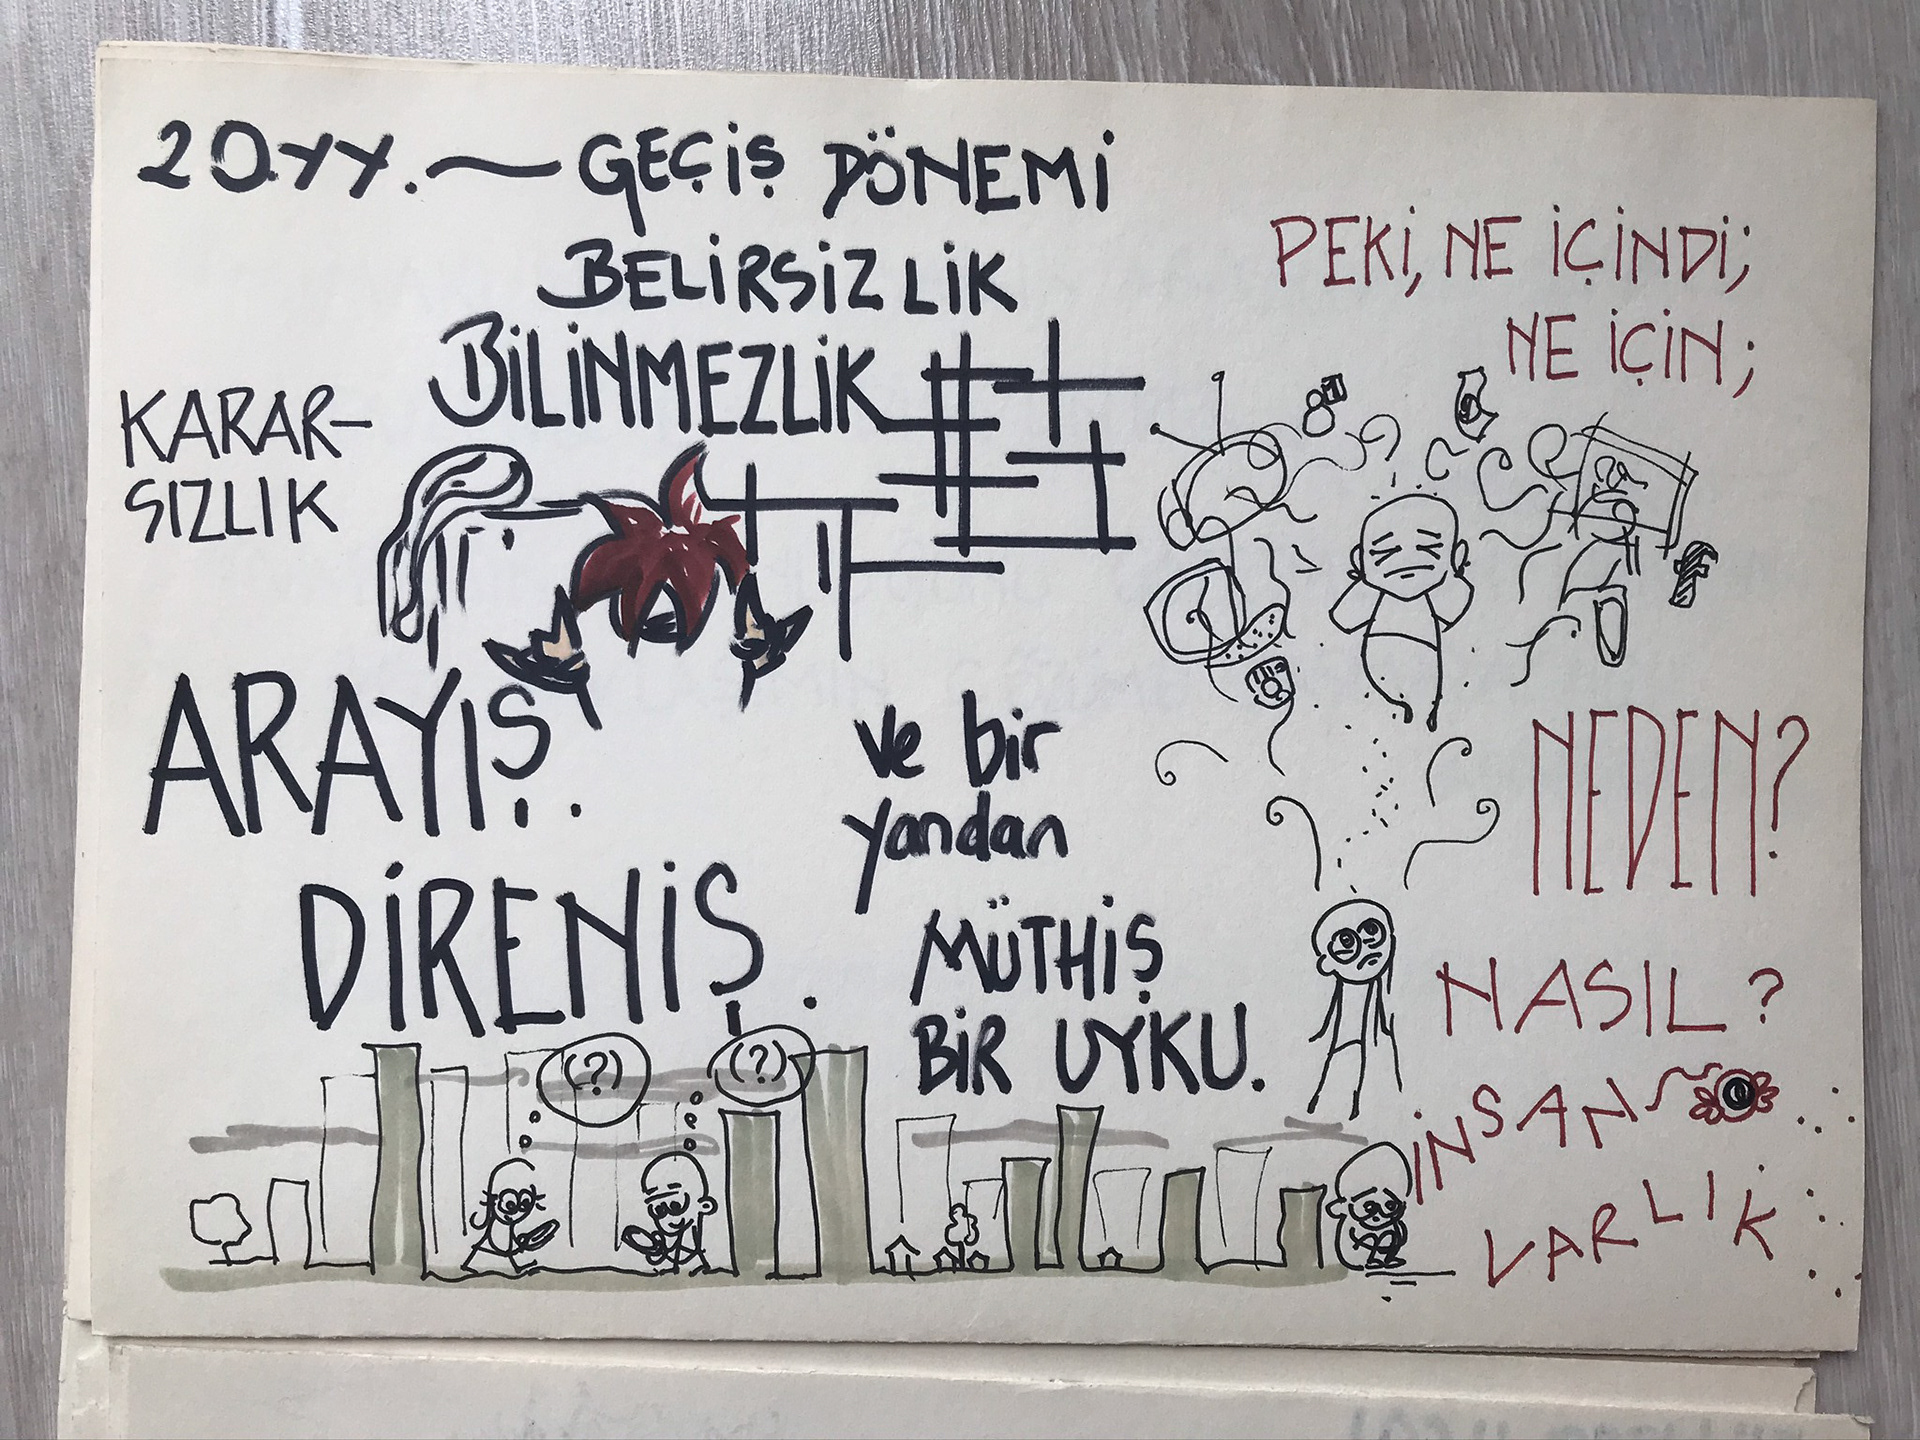 20.yy. — GEÇİŞ DÖNEMİ
BELİRSİZLİK
BİLİNMEZLİK
KARAR-
SIZLIK
ARAYIŞ.
DİRENİŞ.
ve bir
yandan
MÜTHİŞ
BİR UYKU.
(?)
(?)
PEKİ, NE İÇİNDİ;
NE İÇİN;
NEDEN?
NASIL?
İNSAN
VARLIK